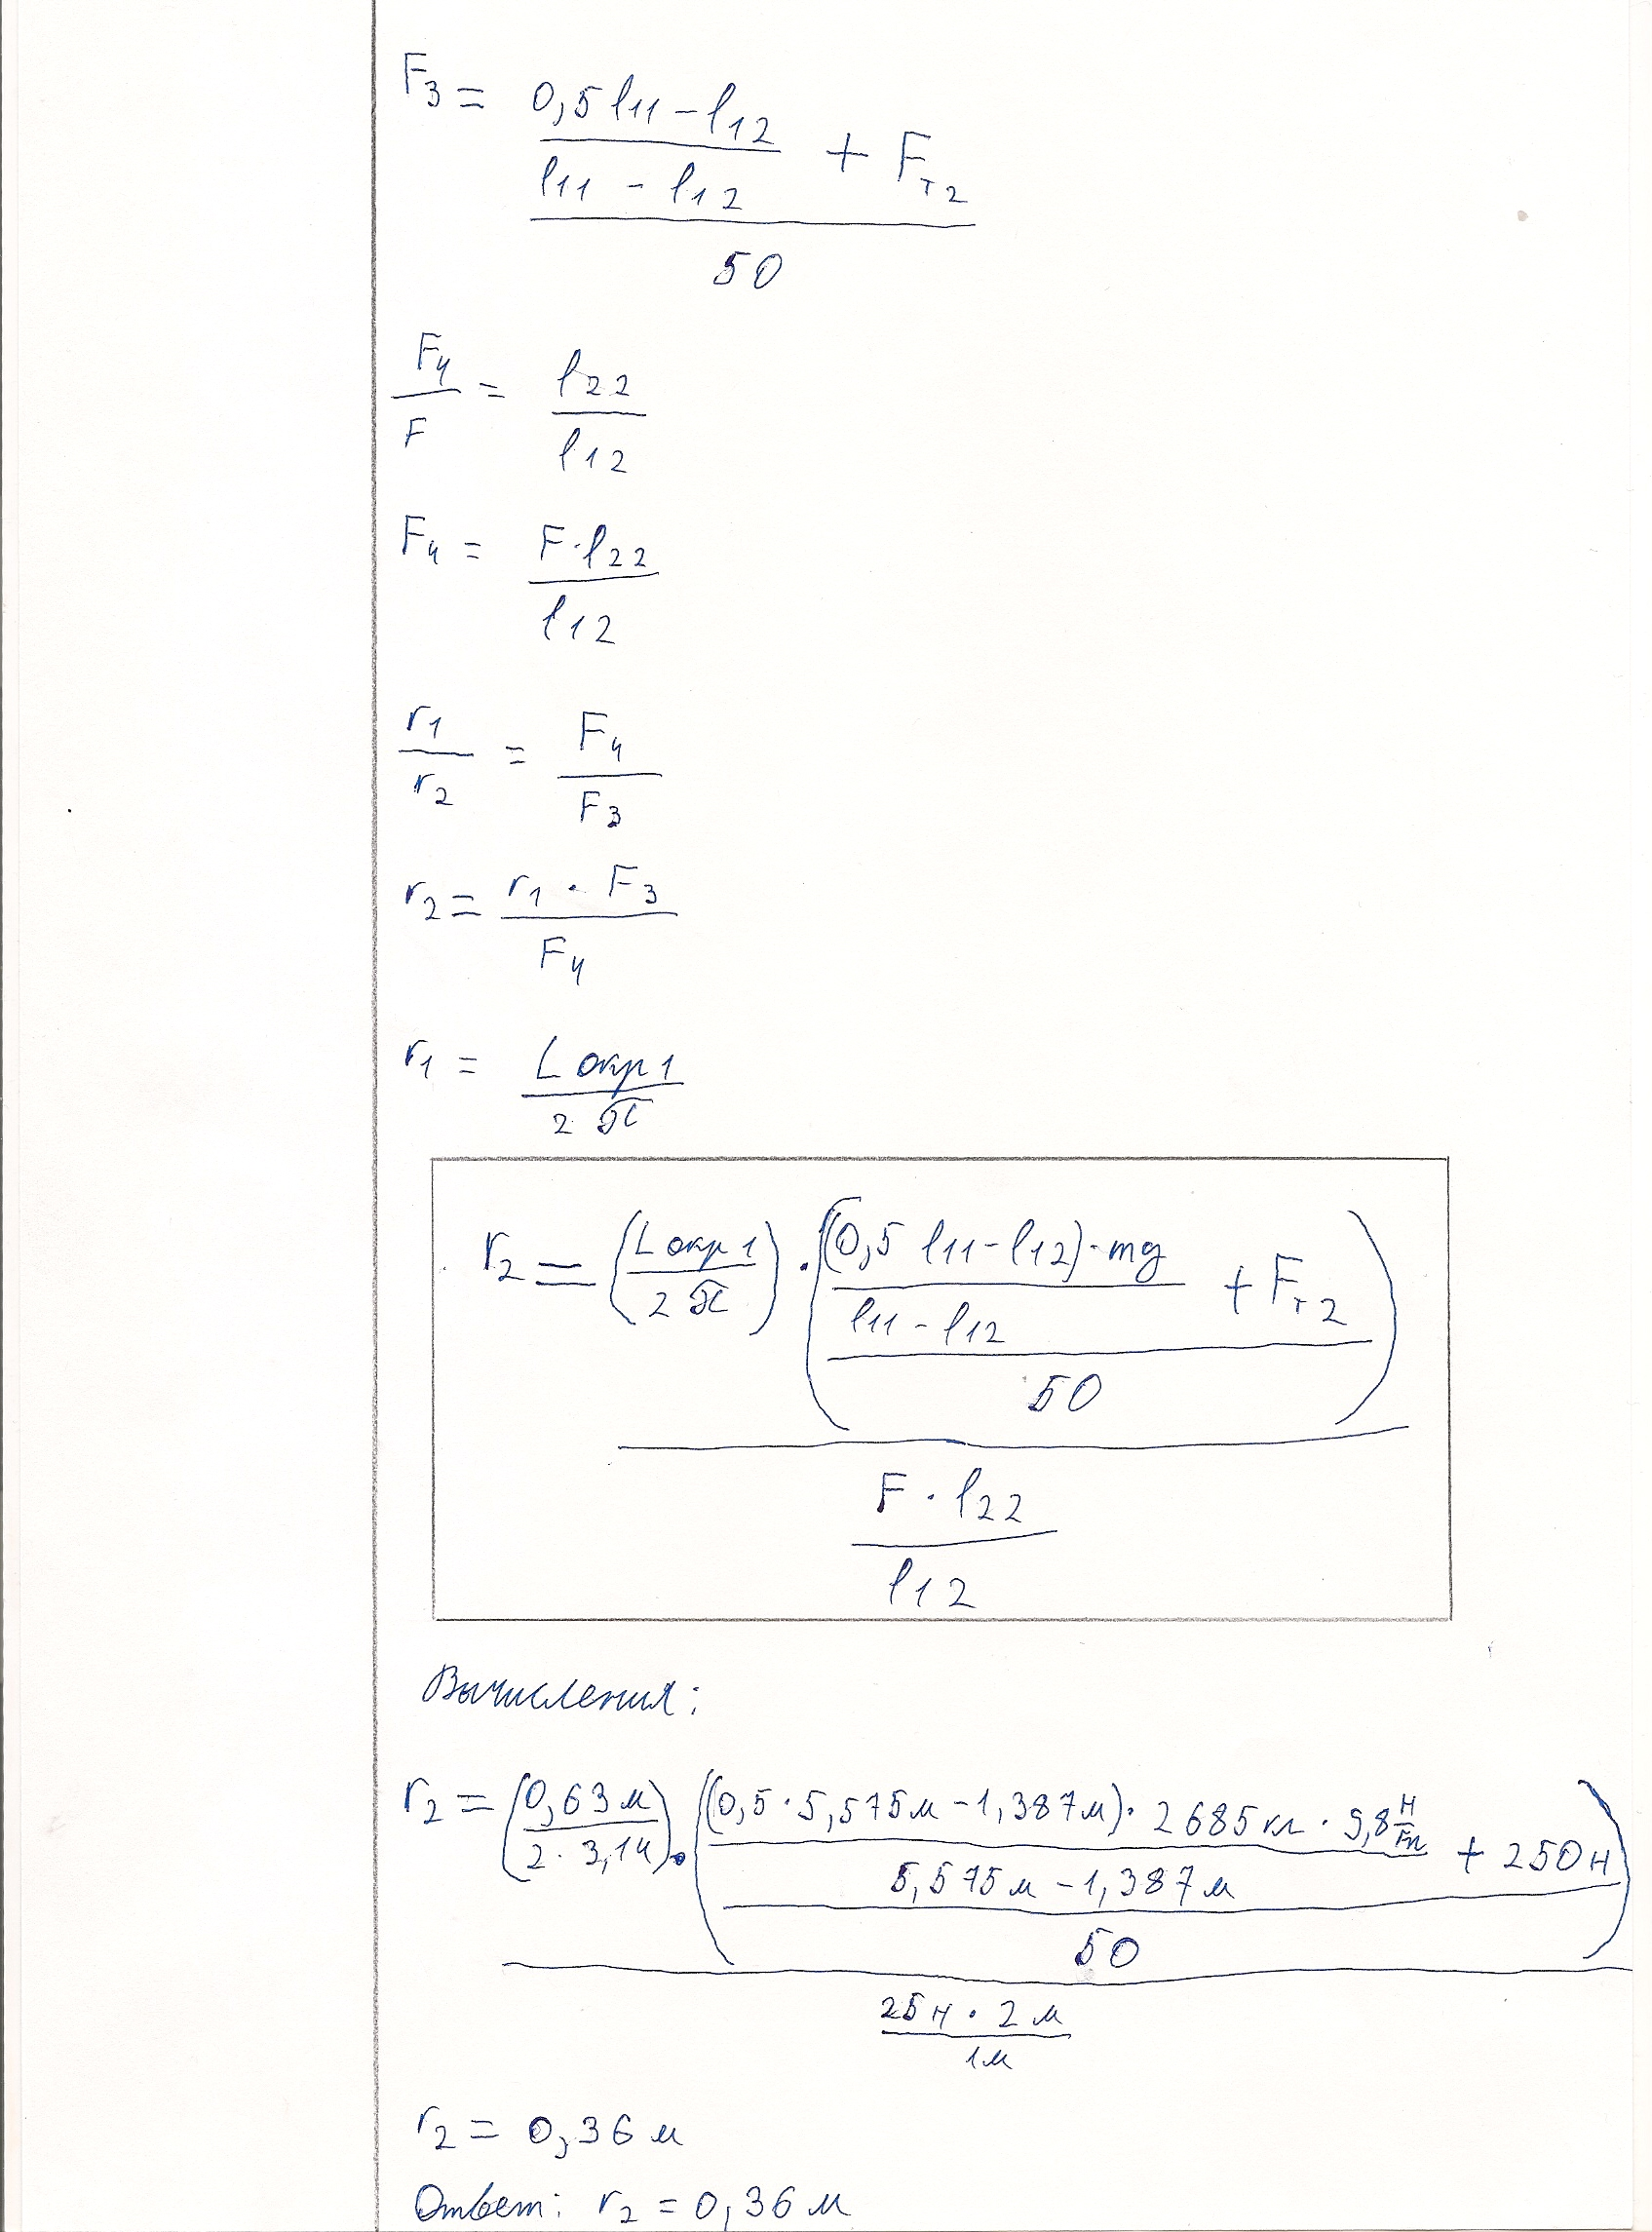 F₃ = ((0,5 l₁₁ - l₁₂)/(l₁₁ - l₁₂) + Fт₂)/50
F₄/F = l₂₂/l₁₂
F₄ = (F · l₂₂)/l₁₂
r₁/r₂ = F₄/F₃
r₂ = (r₁ · F₃)/F₄
r₁ = L окр 1/2π
r₂ = (L окр 1/2π) · (((0,5 l₁₁ - l₁₂) · mg/(l₁₁ - l₁₂) + Fт₂)/50) / (F · l₂₂/l₁₂)
Вычисления:
r₂ = (0,63 м/2 · 3,14) · (((0,5 · 5,575 м - 1,387 м) · 2685 кг · 9,8 Н/кг/(5,575 м - 1,387 м) + 250 Н)/50) / (25 Н · 2 м/1 м)
r₂ = 0,36 м
Ответ: r₂ = 0,36 м